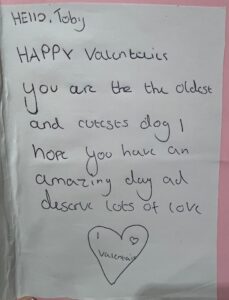 HEllO, Toby
HAPPY Valentwies
you are the the oldest
and cutests dog I
hope you have an
amazing day ad
deserve lots of love
I
Valentwies